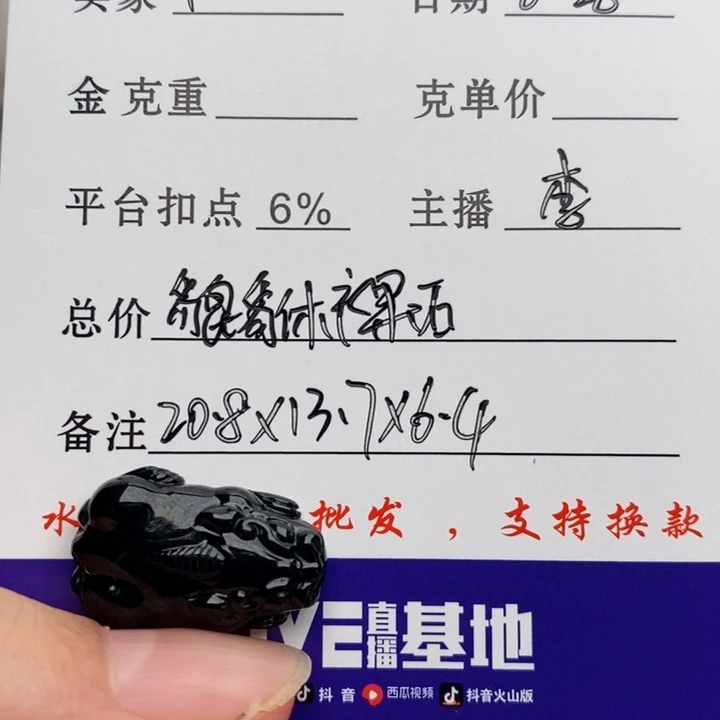 买家 日期
金克重 克单价
平台扣点 6% 主播 李
总价 貔貅裸石
备注 20.8×13.7×6.4
水 批发，支持换款
VE直播基地
抖音 西瓜视频 抖音火山版